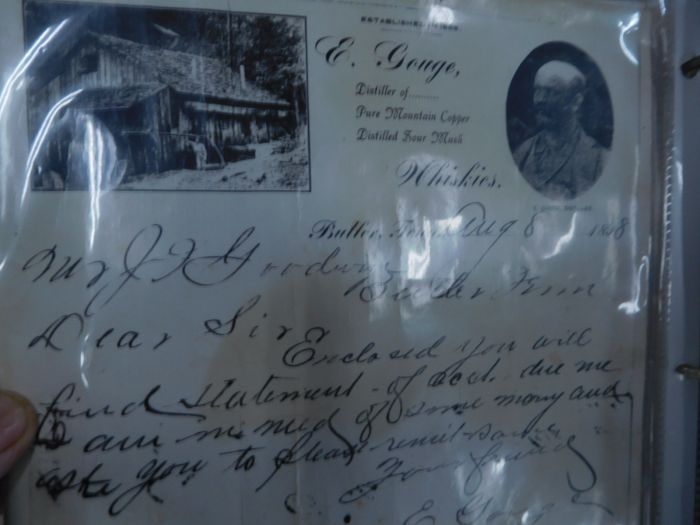 ESTABLISHED IN
E. Gouge,
Distiller of.........
Pure Mountain Copper
Distilled Sour Mash
Whiskies.
Butler, Tenn. Aug 8
Mr J F Goodwin
Butler Tenn
Dear Sir
Enclosed you will
find statement of acct. due me
I am in need of some money and
ask you to please remit same
Your friend
E Gouge